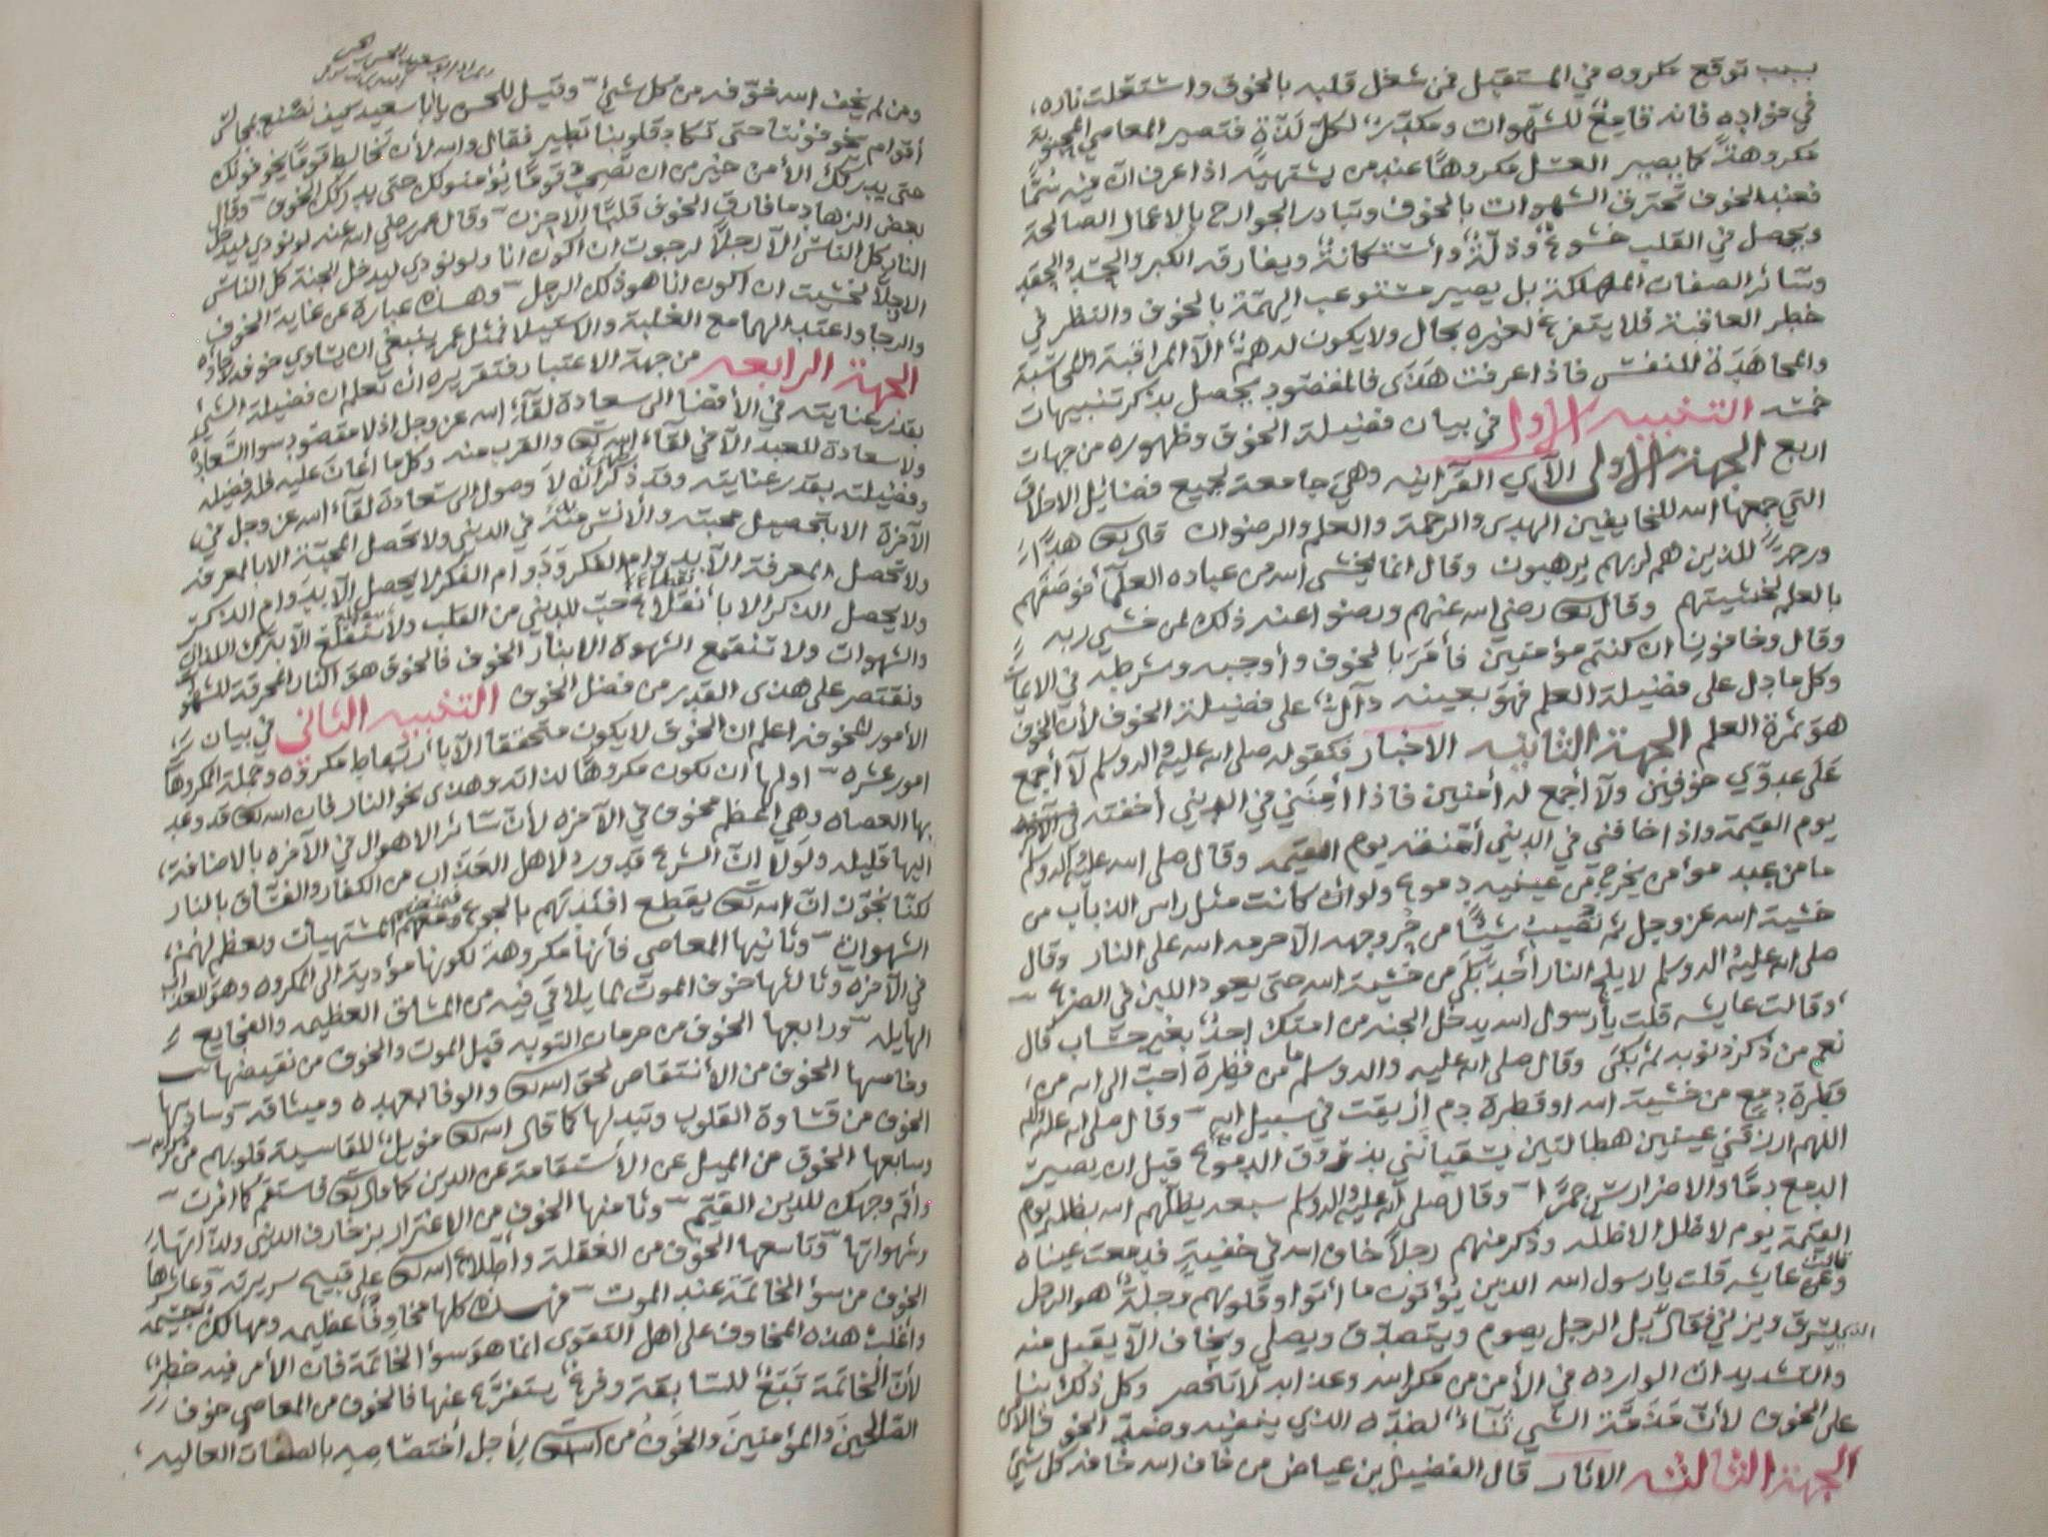 بسبب توقع مكروه في المستقبل فمن شغل قلبه بالخوف واشتعلت ناره،
في فؤاده فانه قامع للشهوات ومكدر لكل لذة فتصير المعاصي المحبوبة
مكروهة كما يصير العسل مكروها عند من يشتهيه اذا عرف ان فيه سُمًّا
فعند الخوف تحترق الشهوات بالخوف وتبادر الجوارح بالاعمال الصالحة
ويحصل في القلب خشوع وذلّة واستكانة ويفارقه الكبر والحسد والحقد
وسائر الصفات المهلكة بل يصير مستوعب الهمّة بالخوف والنظر في
خطر العاقبة فلا يتفرغ لغيره بحال ولا يكون له همّ الا المراقبة والمحاسبة
والمجاهدة للنفس فاذا عرفت هذى فالمقصود يحصل بذكر تنبيهات
خمسه التنبيه الاول في بيان فضيلة الخوف وظهوره من جهات
اربع الجهة الاولى الآي القرانيه وهي جامعة لجميع فضائل الاخلاق
التي جمعها الله للخايفين الهدى والرحمة والعلم والرضوان قال تعالى هدًى
ورحمة للذين هم لربهم يرهبون وقال انما يخشى الله من عباده العلمآ فوصفهم
بالعلم لخشيتهم وقال تعالى رضي الله عنهم ورضوا عنه ذلك لمن خشي ربه
وقال وخافون ان كنتم مؤمنين فأمر بالخوف وأوجبه وشرطه في الايمان
وكل ما دل على فضيلة العلم فهو بعينه دآل على فضيلة الخوف لأن الخوف
هو ثمرة العلم الجهة الثانيه الاخبار فكقوله صلى الله عليه واله وسلم لآ أجمع
على عبدي خوفين ولآ أجمع له أمنين فاذا أمنني في الدنيى أخفته
يوم القيمة واذا خافني في الدنيى أمّنته يوم القيمه وقال صلى الله عليه واله وسلم
ما من عبد مؤمن يخرج من عينيه دموع ولو ان كانت مثل راس الذباب من
خشية الله عز وجل ثم تصيب شيئًا من حُر وجهه الآ حرمه الله على النار وقال
صلى الله عليه واله وسلم لا يلج النار أحد بكى من خشية الله حتى يعود اللبن في الضرع
وقالت عايشه قلت يا رسول الله يدخل الجنه من امتك احد بغير حساب قال
نعم من ذكر ذنوبه ثم بكى وقال صلى الله عليه واله وسلم ما من قطرة احب الى الله من
قطرة دمع من خشية الله او قطرة دم أريقت في سبيل الله وقال صلى الله عليه واله
اللهم ارزقني عينين هطالتين يسقيانني بذروف الدموع قبل ان يصير
الدمع دمًا والاضراس جمرًا وقال صلى الله عليه واله وسلم سبعه يظلهم الله بظله يوم
القيمة يوم لا ظل الا ظله وذكر منهم رجلًا خاف الله في خفية فدمعت عيناه
وعن عايشه قالت قلت يا رسول الله الذين يؤتون ما أتوا وقلوبهم وجلة هو الرجل
الذي يسرق ويزني فقال بل الرجل يصوم ويتصدق ويصلي ويخاف الآ يقبل منه
والتشديدات الوارده في الأمن من مكر الله وعذابه لا تنحصر وكل ذلك ثناء
على الخوف لأن مذمّة الشي ثنآء لضده الذي ينفيه وضد الخوف الأمن
الجهة الثالثه الاثار قال الفضيل بن عياض من خاف الله خافه كل شئ
ومن لم يخف الله خوّفه من كل شئ وقيل للحسن يا ابا سعيد كيف نصنع بمجالس
أقوام يخوفوننا حتى تكاد قلوبنا تطير فقال والله لأن تخالط قومًا يخوفونك
حتى يدركك الأمن خير من ان تصحب قومًا يؤمنونك حتى يدركك الخوف وقال
بعض الزهاد ما فارق الخوف قلبًا الا خرب وقال عمر رضي الله عنه لو نودي ليدخل
النار كل الناس الآ رجلًا لرجوت ان اكون انا ولو نودي ليدخل الجنة كل الناس
الا رجلًا لخشيت ان اكون انا هو ذلك الرجل وهذه عبارة عن غاية الخوف
والرجا واعتدالهما مع الغلبة والاستيلا فمثل عمر ينبغي ان يتساوى خوفه ورجاؤه
الجهة الرابعه من جهة الاعتبار فتقريره أن تعلم ان فضيلة الشئ
بقدر عنايته في الأفضا الى سعادة لقآء الله عز وجل اذ لا مقصود سوا السّعادة
ولا سعادة للعبد الآ في لقآء الله تعالى والقرب منه وكل ما أعان عليه فله فضيله
وفضيلته بقدر عنايته وقد ذكر أنه لا وصول الى سعادة لقآء الله عز وجل في
الآخرة الا بتحصيل محبته والأنس منه في الدنيى ولا تحصل المحبّة الا بالمعرفه
ولا تحصل المعرفة الآ بدوام الفكر ودوام الفكر لا يحصل الآ بدوام الذكر
ولا يحصل الذكر الا بأنقطاع حبّ الدنيى من القلب ولا ينقلع الآ بترك اللذات
والشهوات ولا تنقمع الشهوة الا بنار الخوف فالخوف هو النار المحرقة للشهوة
ونقتصر على هذى القدر من فضل الخوف التنبيه الثاني في بيان
الأمور المخوفه اعلم ان الخوف لا يكون متحققا الآ بأرتباط مكروه وجملة المكروهات
امور عشره اولها أن تكون مكروها لذاته وهذى نحو النار فان الله تعالى قد وعد
بها العصاه وهي اعظم مخوف في الآخره لأن سائر الاهوال في الآخره بالاضافة
اليها قليله ولولا ان الشرع قد ورد لاهل العذاب من الكفار والفسّاق بالنار
لكنا نجوّز انّ الله تعالى يقطع افئدتهم بالجوع المشتهيات وبعظم لهفهم
الشهوات وثانيها المعاصي فأنها مكروهة لكونها مؤدية الى المكروه وهو العذاب
في الآخره وثالثها خوف الموت لما يلاقي فيه من المشاق العظيمه والفجايع
الهايله ورابعها الخوف من حرمان التوبه قبل الموت والخوف من نقيضها
وخامسها الخوف من الأنتقاص لحق الله تعالى والوفا بعهده وميثاقه وسادسها
الخوف من قساوة القلوب وتبدلها كما قال الله تعالى فويل للقاسية قلوبهم من ذكر الله
وسابعها الخوف من الميل عن الأستقامة عن الدين كما قال تعالى فاستقم كما امرت
وأقم وجهك للدين القيّم وثامنها الخوف من الاغترار بزخارف الدنيى ولذاتها
وشهواتها وتاسعها الخوف من الغفلة وأطّلاع الله تعالى على قبيح سريرته وعاشرها
الخوف من سؤ الخاتمة عند الموت فهذه كلها مخاوف عظيمه ومهالك جسيمه
وأغلب هذه المخاوف على اهل التقوى انما هو سؤ الخاتمة فان الأمر فيه خطر
لأن الخاتمة تبَع للسابقة وفرع يتفرّع عنها فالخوف من المعاصي خوف
الصّالحين والمؤمنين والخوف من الله تعالى لأجل أختصاصه بالصفات العاليه،